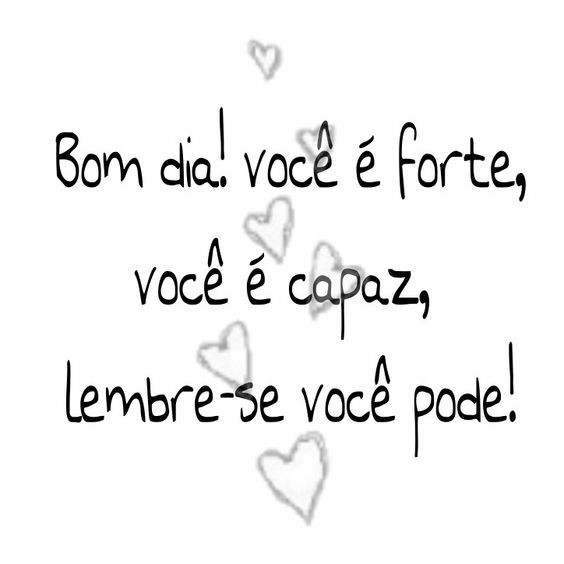 Bom dia! você é forte,
você é capaz,
lembre-se você pode!